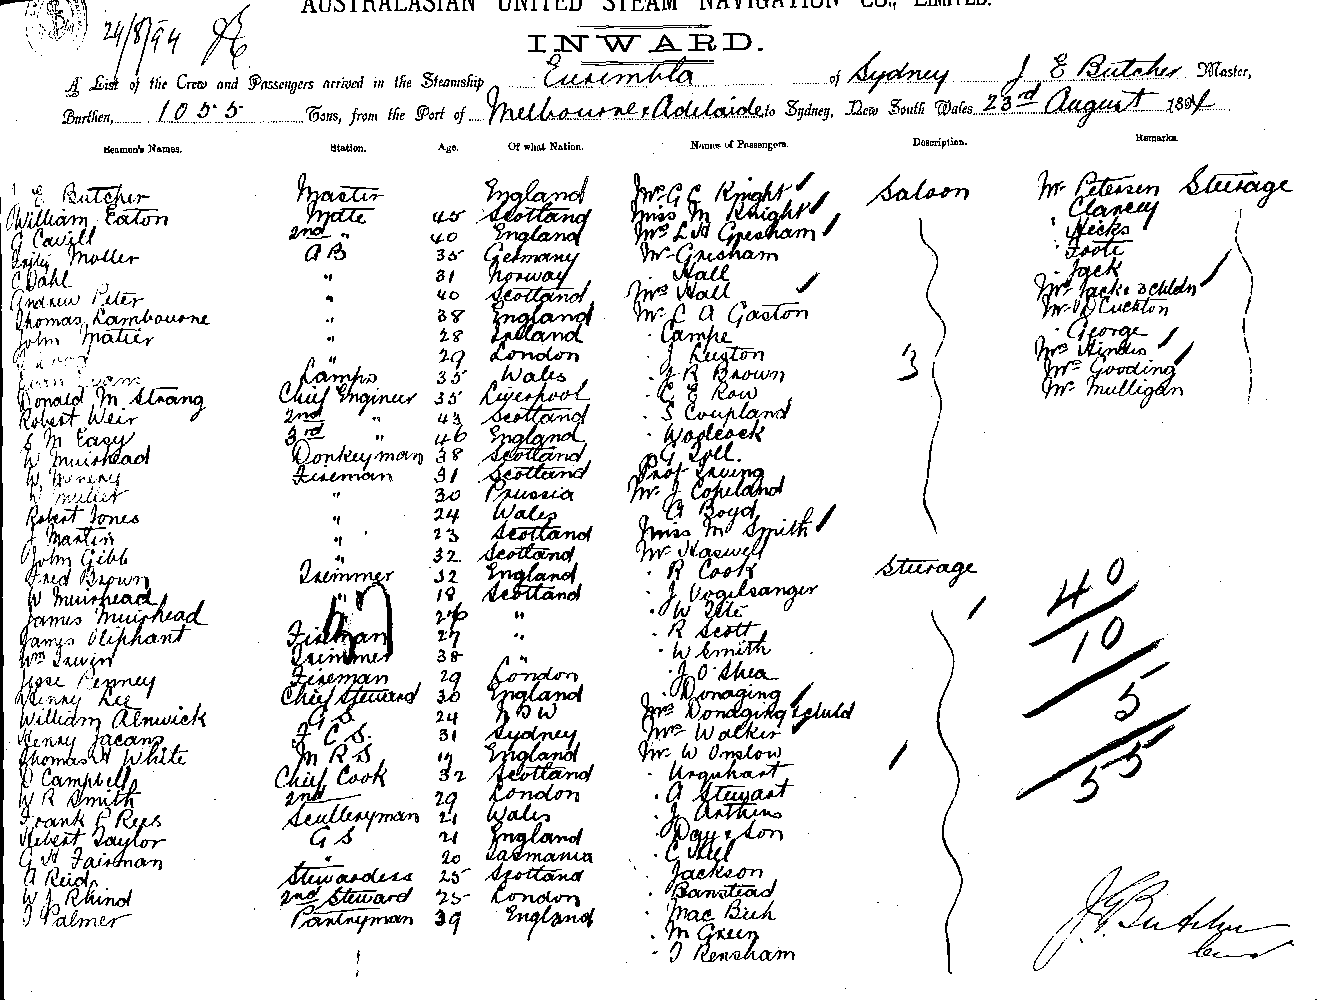 AUSTRALASIAN UNITED STEAM NAVIGATION CO., LIMITED.
24/8/94
INWARD.
A List of the Crew and Passengers arrived in the Steamship Eurimbla of Sydney J E Butcher Master,
Burthen, 1055 Tons, from the Port of Melbourne & Adelaide to Sydney, New South Wales 23rd August 1894
Seamen's Names. Station. Age. Of what Nation. Names of Passengers. Description. Remarks.
E Butcher Master England Mrs G C Knight Saloon Mr Petersen Steerage
William Eaton Mate 45 Scotland Miss M Knight " Clancey
G Cavill 2nd " 40 England Mrs L A Gresham " Hicks
Moller A B 35 Germany Mr Gresham " Foote
C Dahl " 31 Norway " Hall " Jack
Andrew Peter " 40 Scotland Mrs Hall Mrs Jack & 3 chldn
Thomas Lambourne " 38 England Mr C A Gaston Mr D Cuckton
John Matier " 28 Ireland " Campe " George
" 29 London " J Luston 3 Mrs Hindes
Lamps 35 Wales " J R Brown Mrs Gooding
Donald M Strang Chief Engineer 35 Liverpool " C E Row Mr Mulligan
Robert Weir 2nd " 43 Scotland " S Coupland
S M Easy 3rd " 46 England " Woolcock
W Muirhead Donkeyman 38 Scotland " G Toll.
W Fireman 31 Scotland Prof Irving
Miller " 30 Prussia Mr J Copeland
Robert Jones " 24 Wales " A Boyd
J Martin " 23 Scotland Miss M Smith
John Gibb " 32 Scotland Mr Haswell
Fred Brown Trimmer 32 England " R Cook Steerage
W Muirhead " 18 Scotland " J Vogelsanger
James Muirhead 26 " " W Tite
James Oliphant Fireman 27 " " R Scott
Wm Irwin Trimmer 38 " " W Smith
Jesse Penney Fireman 29 London " J O'Shea
Henry Lee Chief Steward 30 England " Donaging
William Alnwick G S. 24 N S W Mrs Donaging & child
Henry Jacans F C S. 31 Sydney Mrs Walker
Thomas H White M R S 19 England Mr W Onslow
C Campbell Chief Cook 32 Scotland " Urquhart
W R Smith 2nd " 29 London " A Stewart
Frank P Rees Sculleryman 21 Wales " J Arthins
Hebert Taylor G S 21 England " Day & Son
G H Fairman " 20 Tasmania " C Hill
A Reid Stewardess 25 Scotland " Jackson
W J Rhind 2nd Steward 25 London " Banstead
J Palmer Pantryman 39 England " Mac Beth
" M Green
" J Rensham
37
40
10
5
55
J. E. Butcher